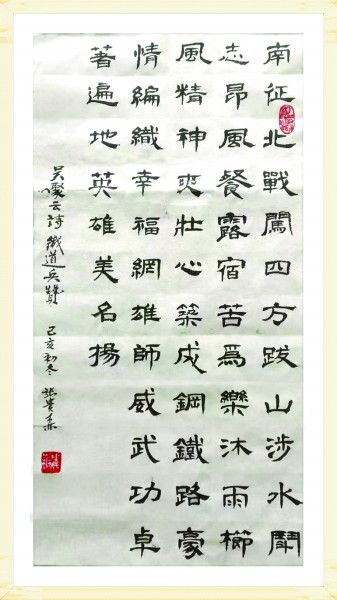 南征北戰闖四方跋山涉水鬥
志昂風餐露宿苦爲樂沐雨櫛
風精神爽壯心築成鋼鐵路豪
情編織幸福網雄師威武功卓
著遍地英雄美名揚
吴聚云詩 鐵道兵贊 己亥初冬 張貴